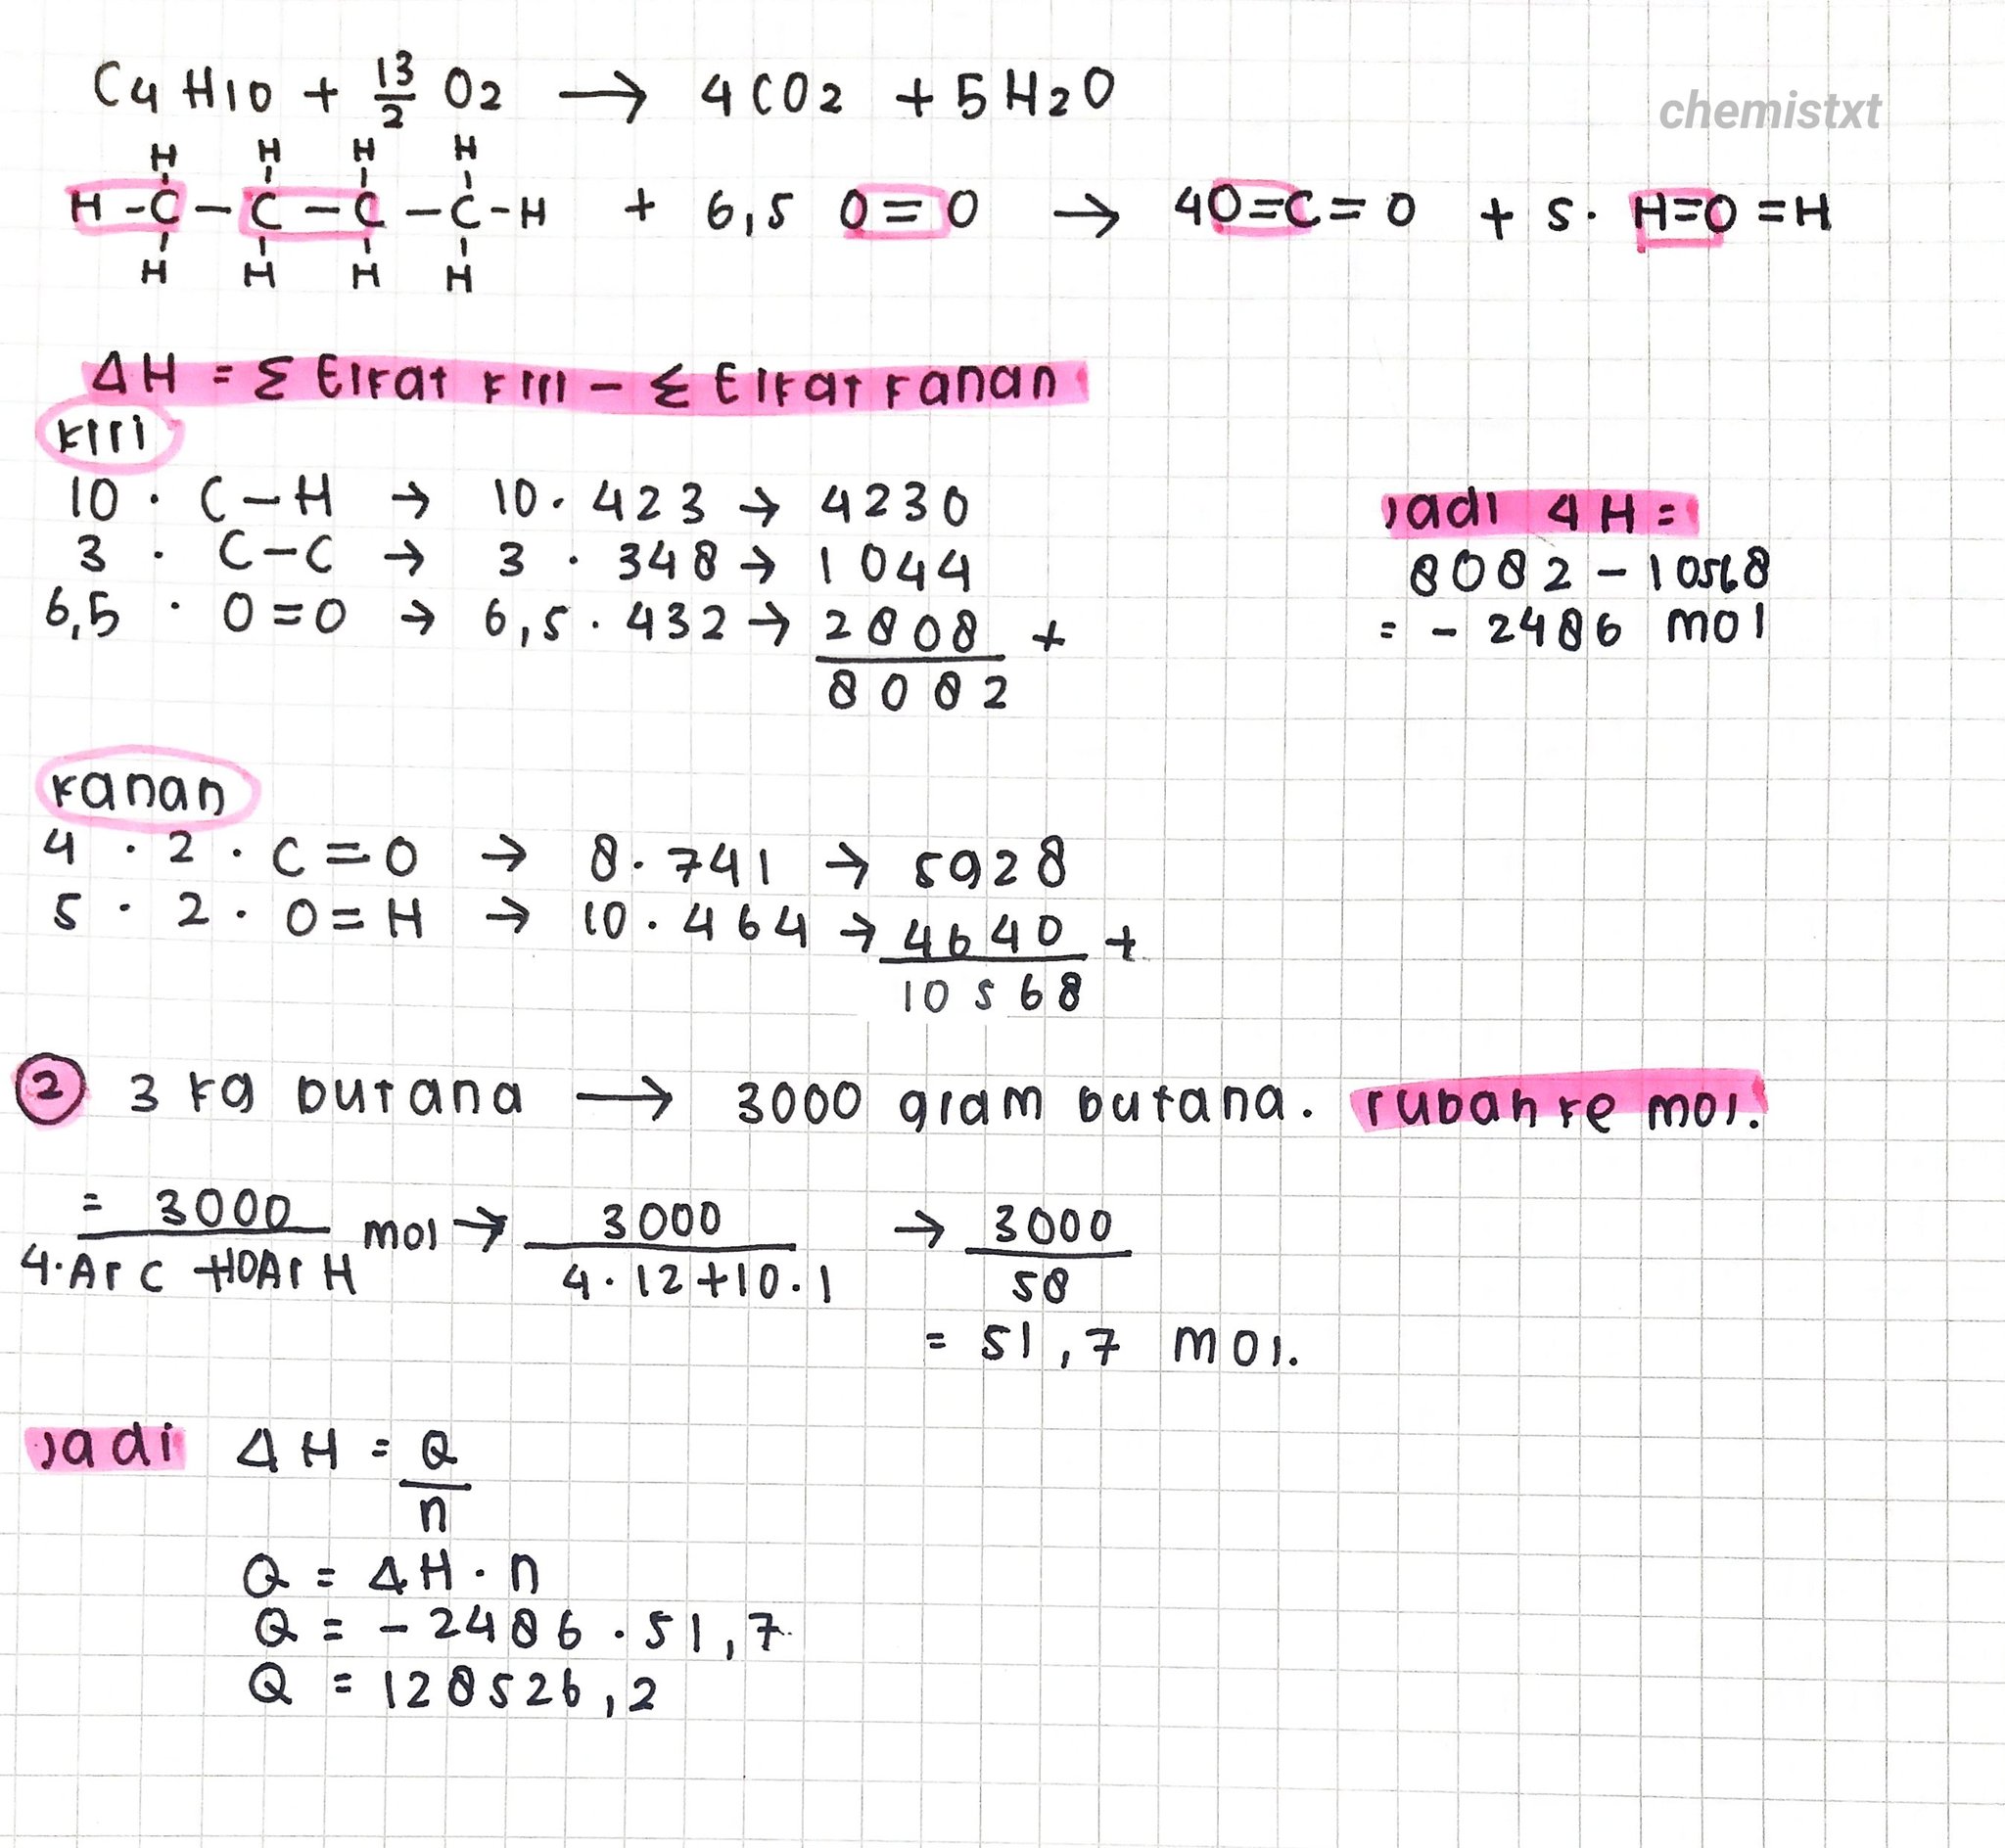 C4H10 + 13/2 O2 → 4CO2 + 5H2O
chemistxt
H H H H
H-C-C-C-C-H + 6,5 O=O → 4O=C=O + 5. H=O=H
H H H H
ΔH = Σ Eikat kiri - Σ Eikat kanan
kiri
10 . C-H → 10. 423 → 4230
3 . C-C → 3 . 348 → 1044
6,5 . O=O → 6,5. 432 → 2808 +
8082
Jadi ΔH =
8082 - 10568
= - 2486 mol
kanan
4 . 2 . C=O → 8. 741 → 5928
5 . 2 . O=H → 10. 464 → 4640 +
10568
2 3 kg butana → 3000 gram butana. rubah ke mol.
= 3000 / 4.Ar C +10Ar H mol → 3000 / 4.12+10.1 → 3000 / 58
= 51,7 mol.
Jadi ΔH = Q / n
Q = ΔH . n
Q = - 2486 . 51,7
Q = 128526,2